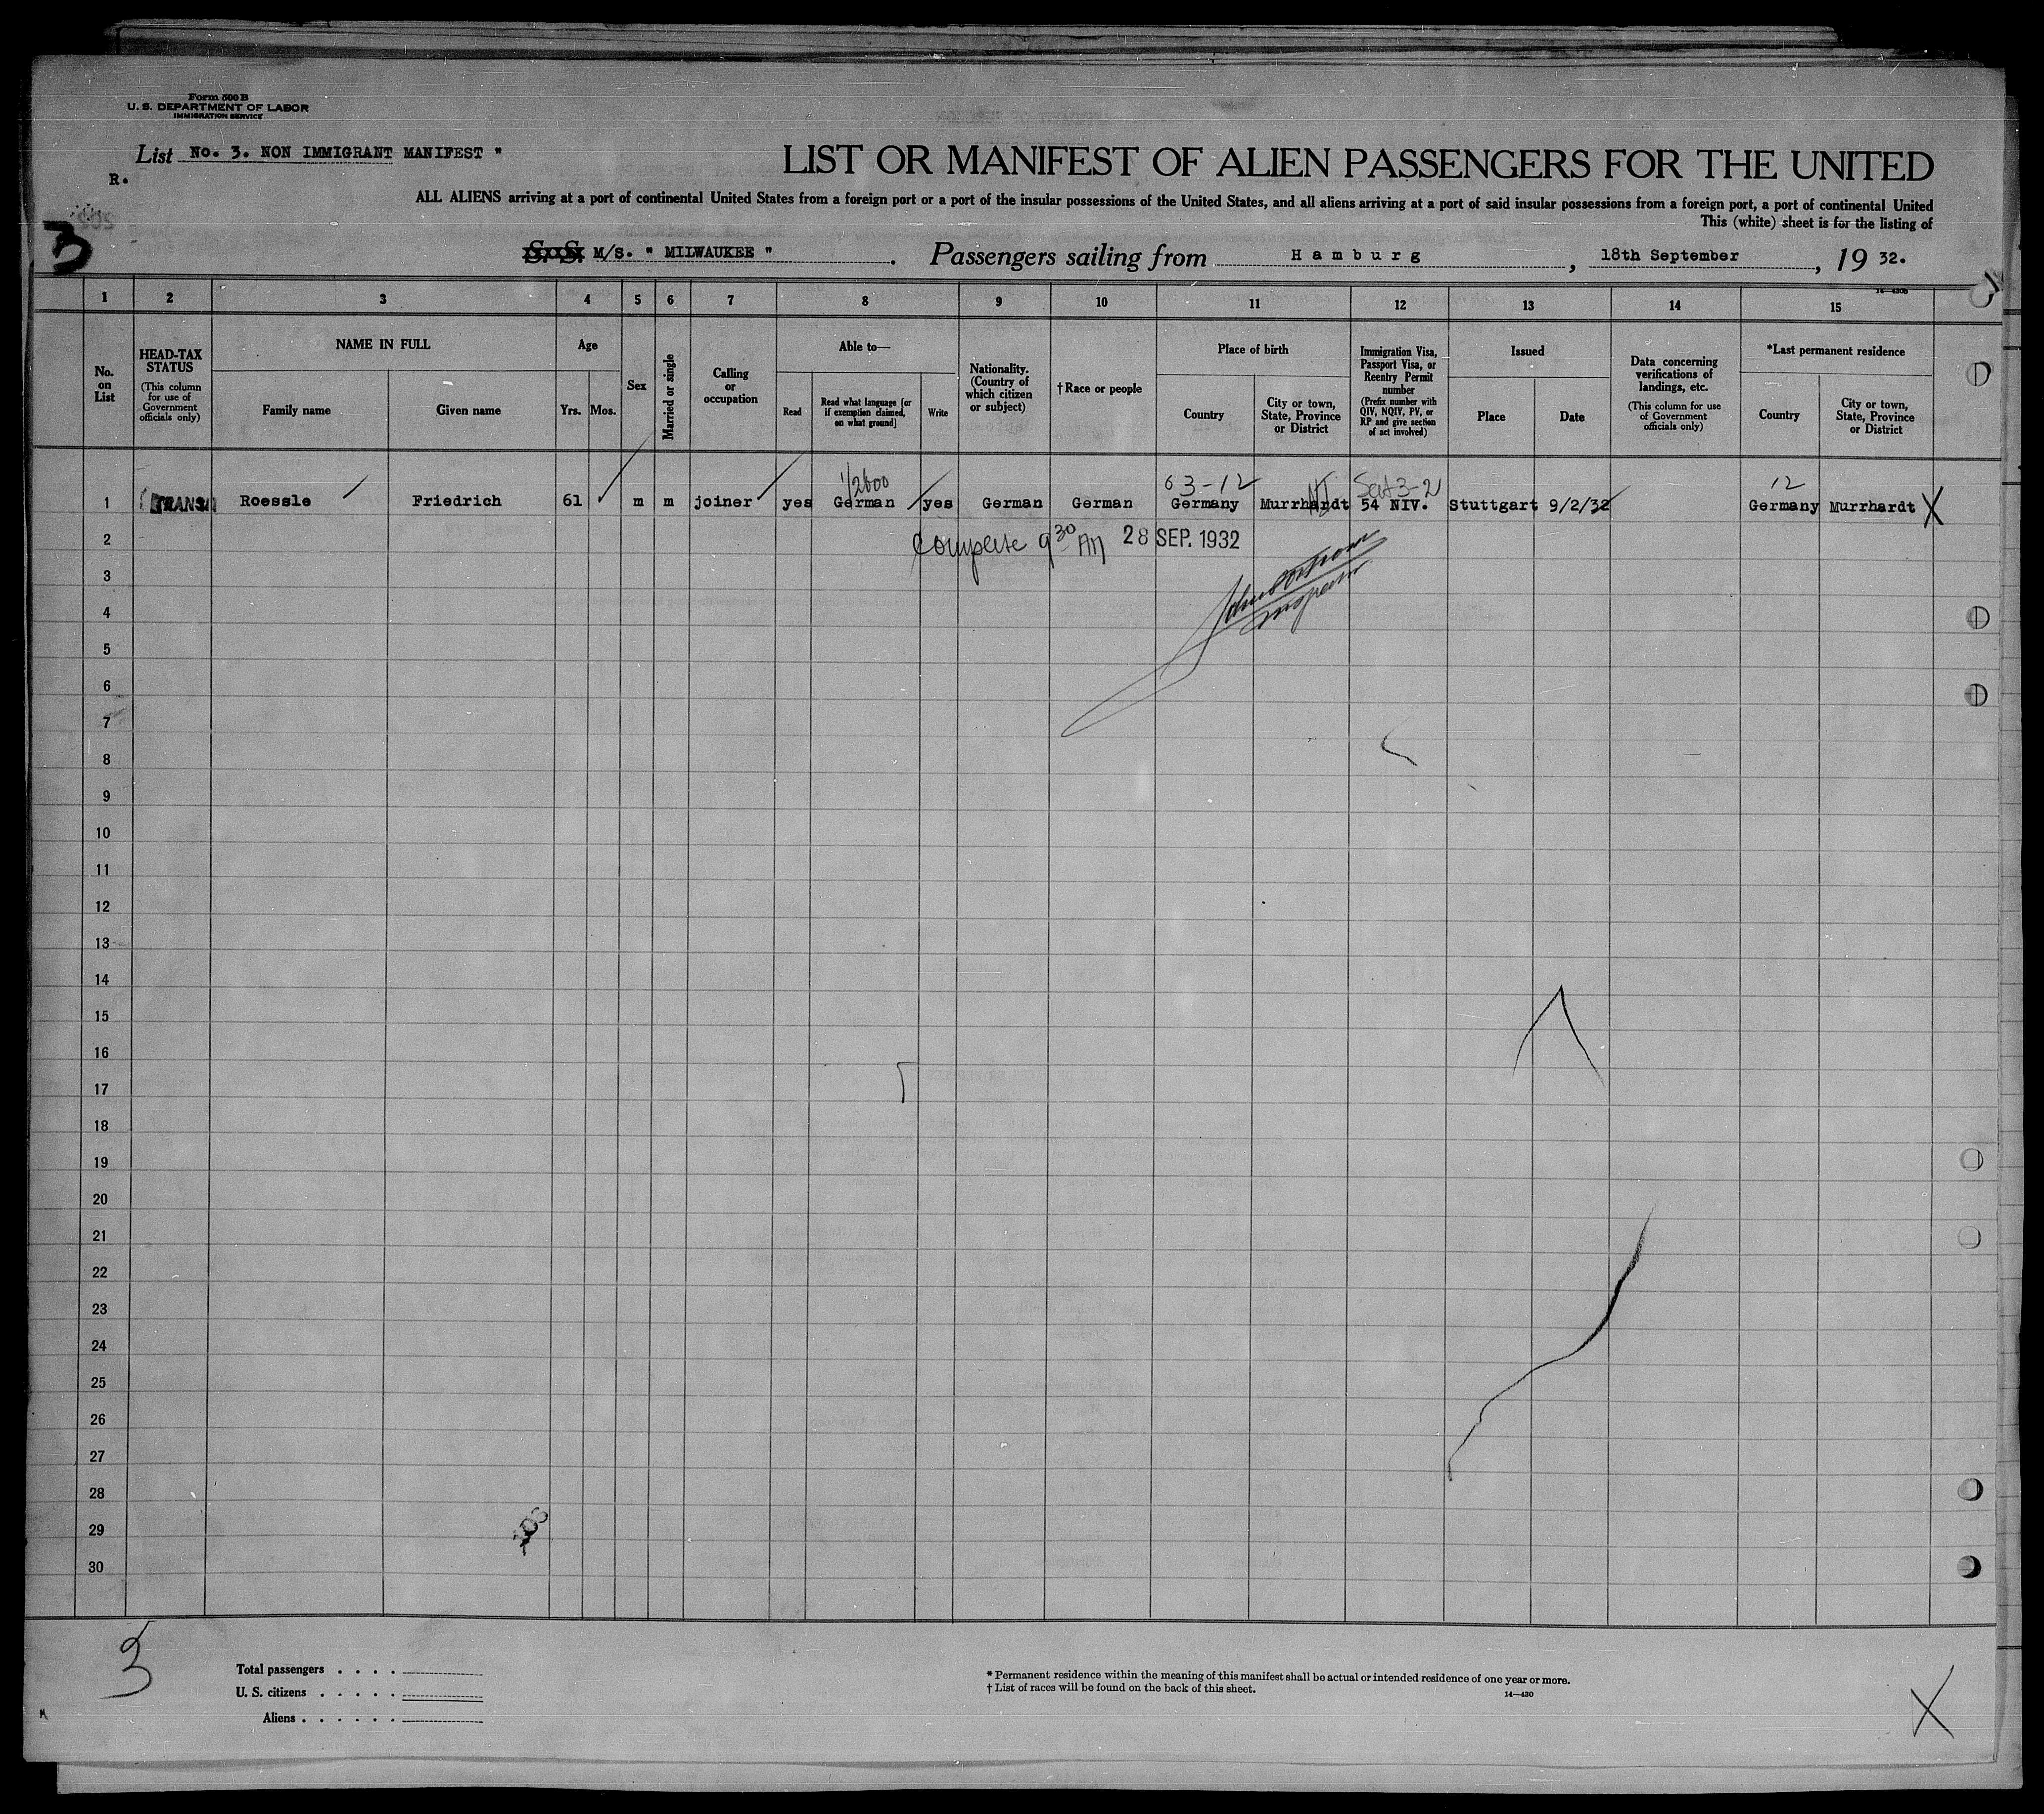 Form 500 B
U. S. DEPARTMENT OF LABOR
IMMIGRATION SERVICE
List No. 3. NON IMMIGRANT MANIFEST "
R.
LIST OR MANIFEST OF ALIEN PASSENGERS FOR THE UNITED
ALL ALIENS arriving at a port of continental United States from a foreign port or a port of the insular possessions of the United States, and all aliens arriving at a port of said insular possessions from a foreign port, a port of continental United
This (white) sheet is for the listing of
3
S. S. M/S. " MILWAUKEE " . Passengers sailing from Hamburg , 18th September , 19 32.
1 2 3 4 5 6 7 8 9 10 11 12 13 14 15
No. on List
HEAD-TAX STATUS
(This column for use of Government officials only)
NAME IN FULL
Family name Given name
Age
Yrs. Mos.
Sex
Married or single
Calling or occupation
Able to—
Read
Read what language [or if exemption claimed, on what ground]
Write
Nationality. (Country of which citizen or subject)
†Race or people
Place of birth
Country
City or town, State, Province or District
Immigration Visa, Passport Visa, or Reentry Permit number
(Prefix number with QIV, NQIV, PV, or RP and give section of act involved)
Issued
Place Date
Data concerning verifications of landings, etc.
(This column for use of Government officials only)
*Last permanent residence
Country
City or town, State, Province or District
63-12 12
1 TRANSI Roessle Friedrich 61 m m joiner yes German yes German German Germany Murrhardt 54 NIV. Stuttgart 9/2/32 Germany Murrhardt X
2 28 SEP. 1932
3
4
5
6
7
8
9
10
11
12
13
14
15
16
17
18
19
20
21
22
23
24
25
26
27
28
29
30
3
Total passengers . . . .
U. S. citizens . . . . .
Aliens . . . . . .
* Permanent residence within the meaning of this manifest shall be actual or intended residence of one year or more.
† List of races will be found on the back of this sheet.
14—430
X